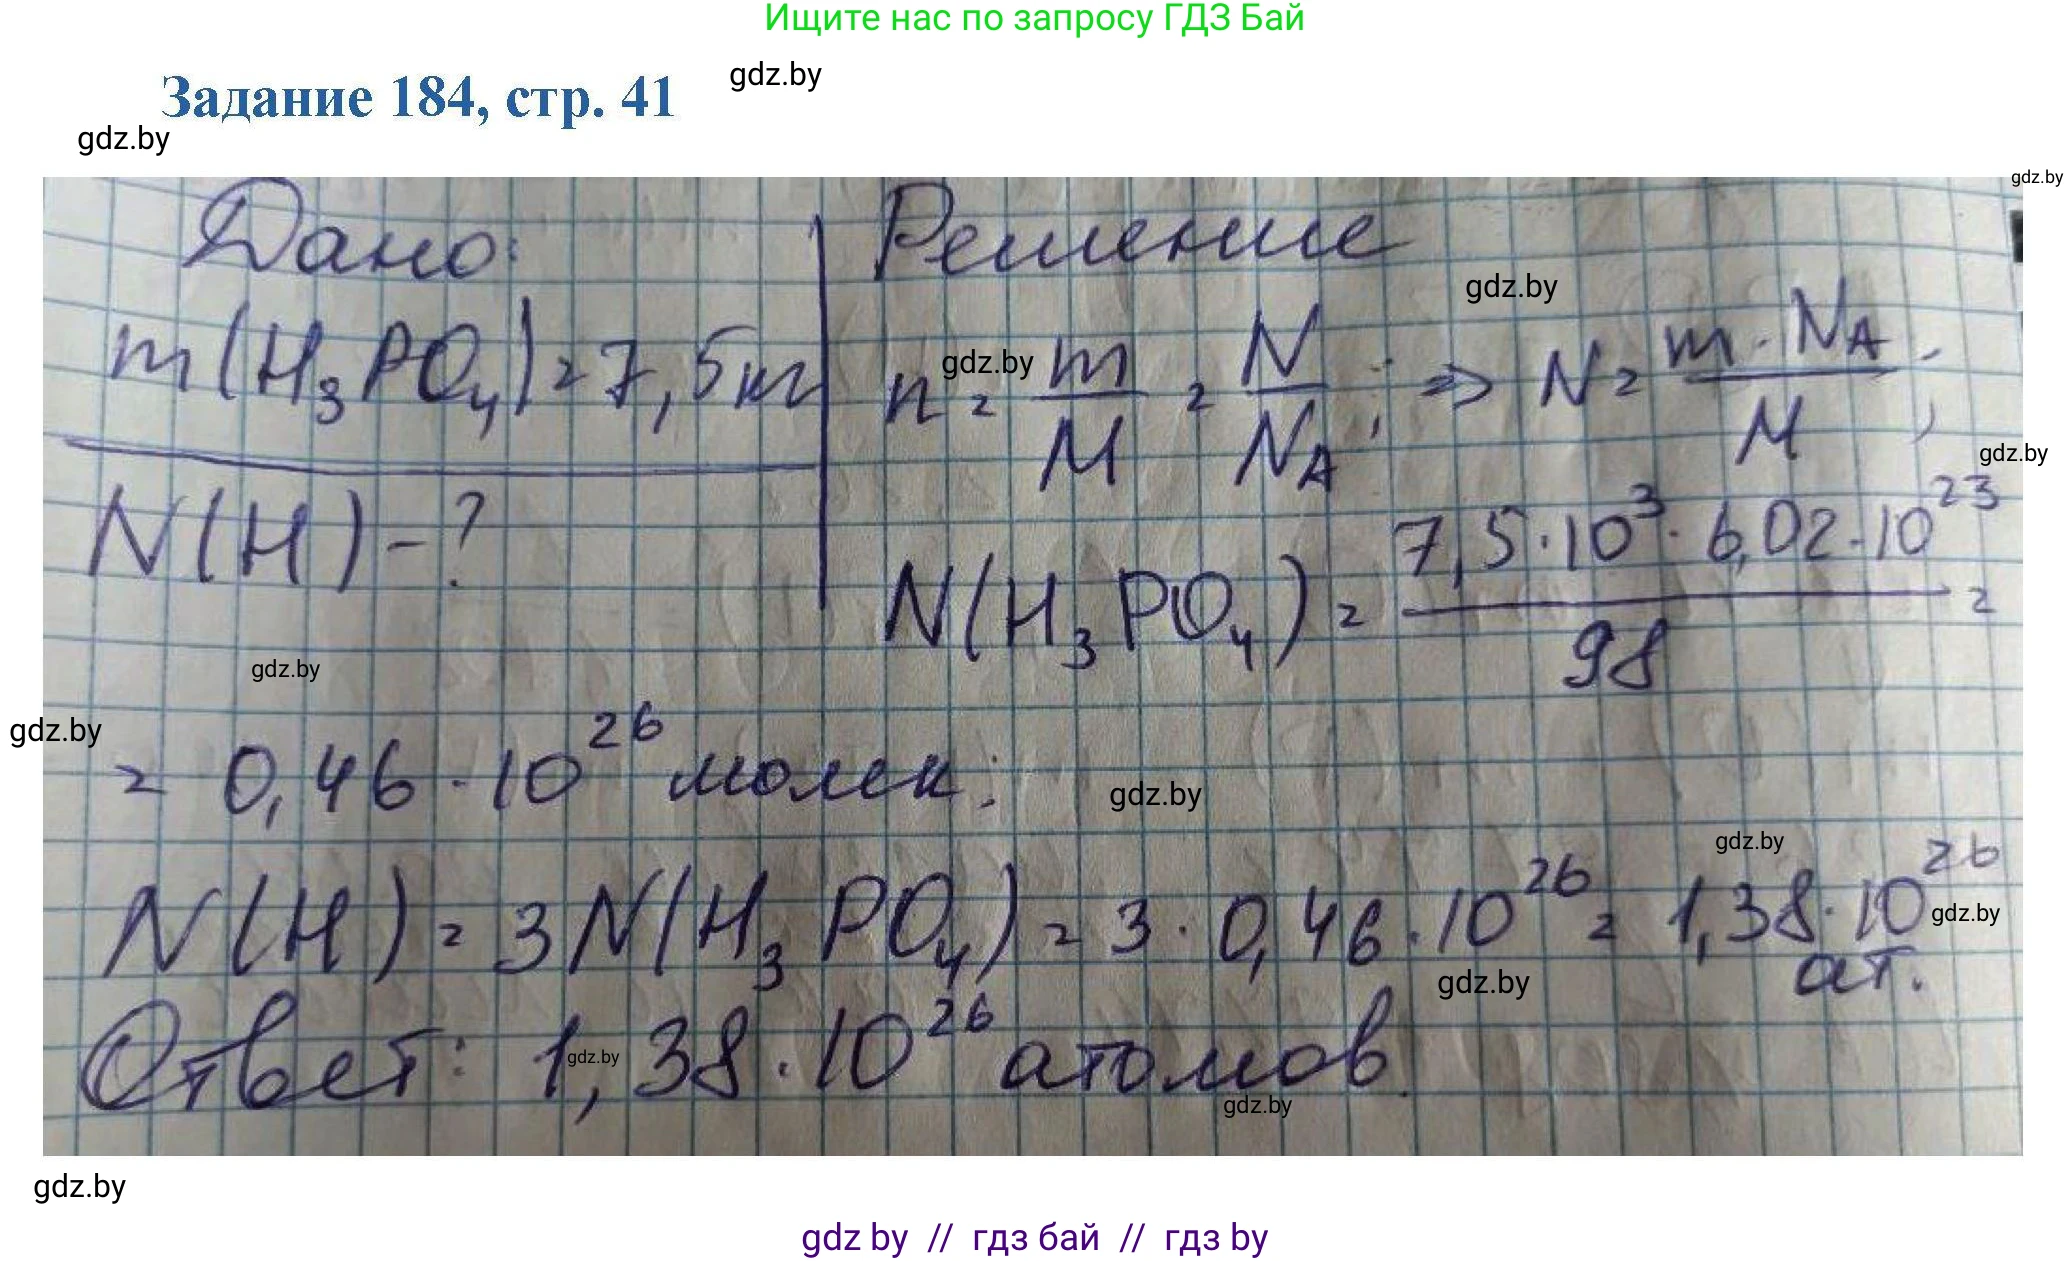 Ищите нас по запросу ГДЗ Бай
gdz.by
Задание 184, стр. 41
gdz.by
gdz.by
Дано: Решение
gdz.by
m(H₃PO₄)=7,5кг n = m/M = N/N_A; => N = m·N_A/M;
gdz.by
gdz.by
N(H)-? N(H₃PO₄) = 7,5·10³·6,02·10²³/98 =
gdz.by
gdz.by
= 0,46·10²⁶ молек.;
gdz.by
gdz.by
N(H) = 3N(H₃PO₄) = 3·0,46·10²⁶ = 1,38·10²⁶ ат.
gdz.by
gdz.by
Ответ: 1,38·10²⁶ атомов.
gdz.by
gdz.by
gdz.by
gdz by // гдз бай // гдз by